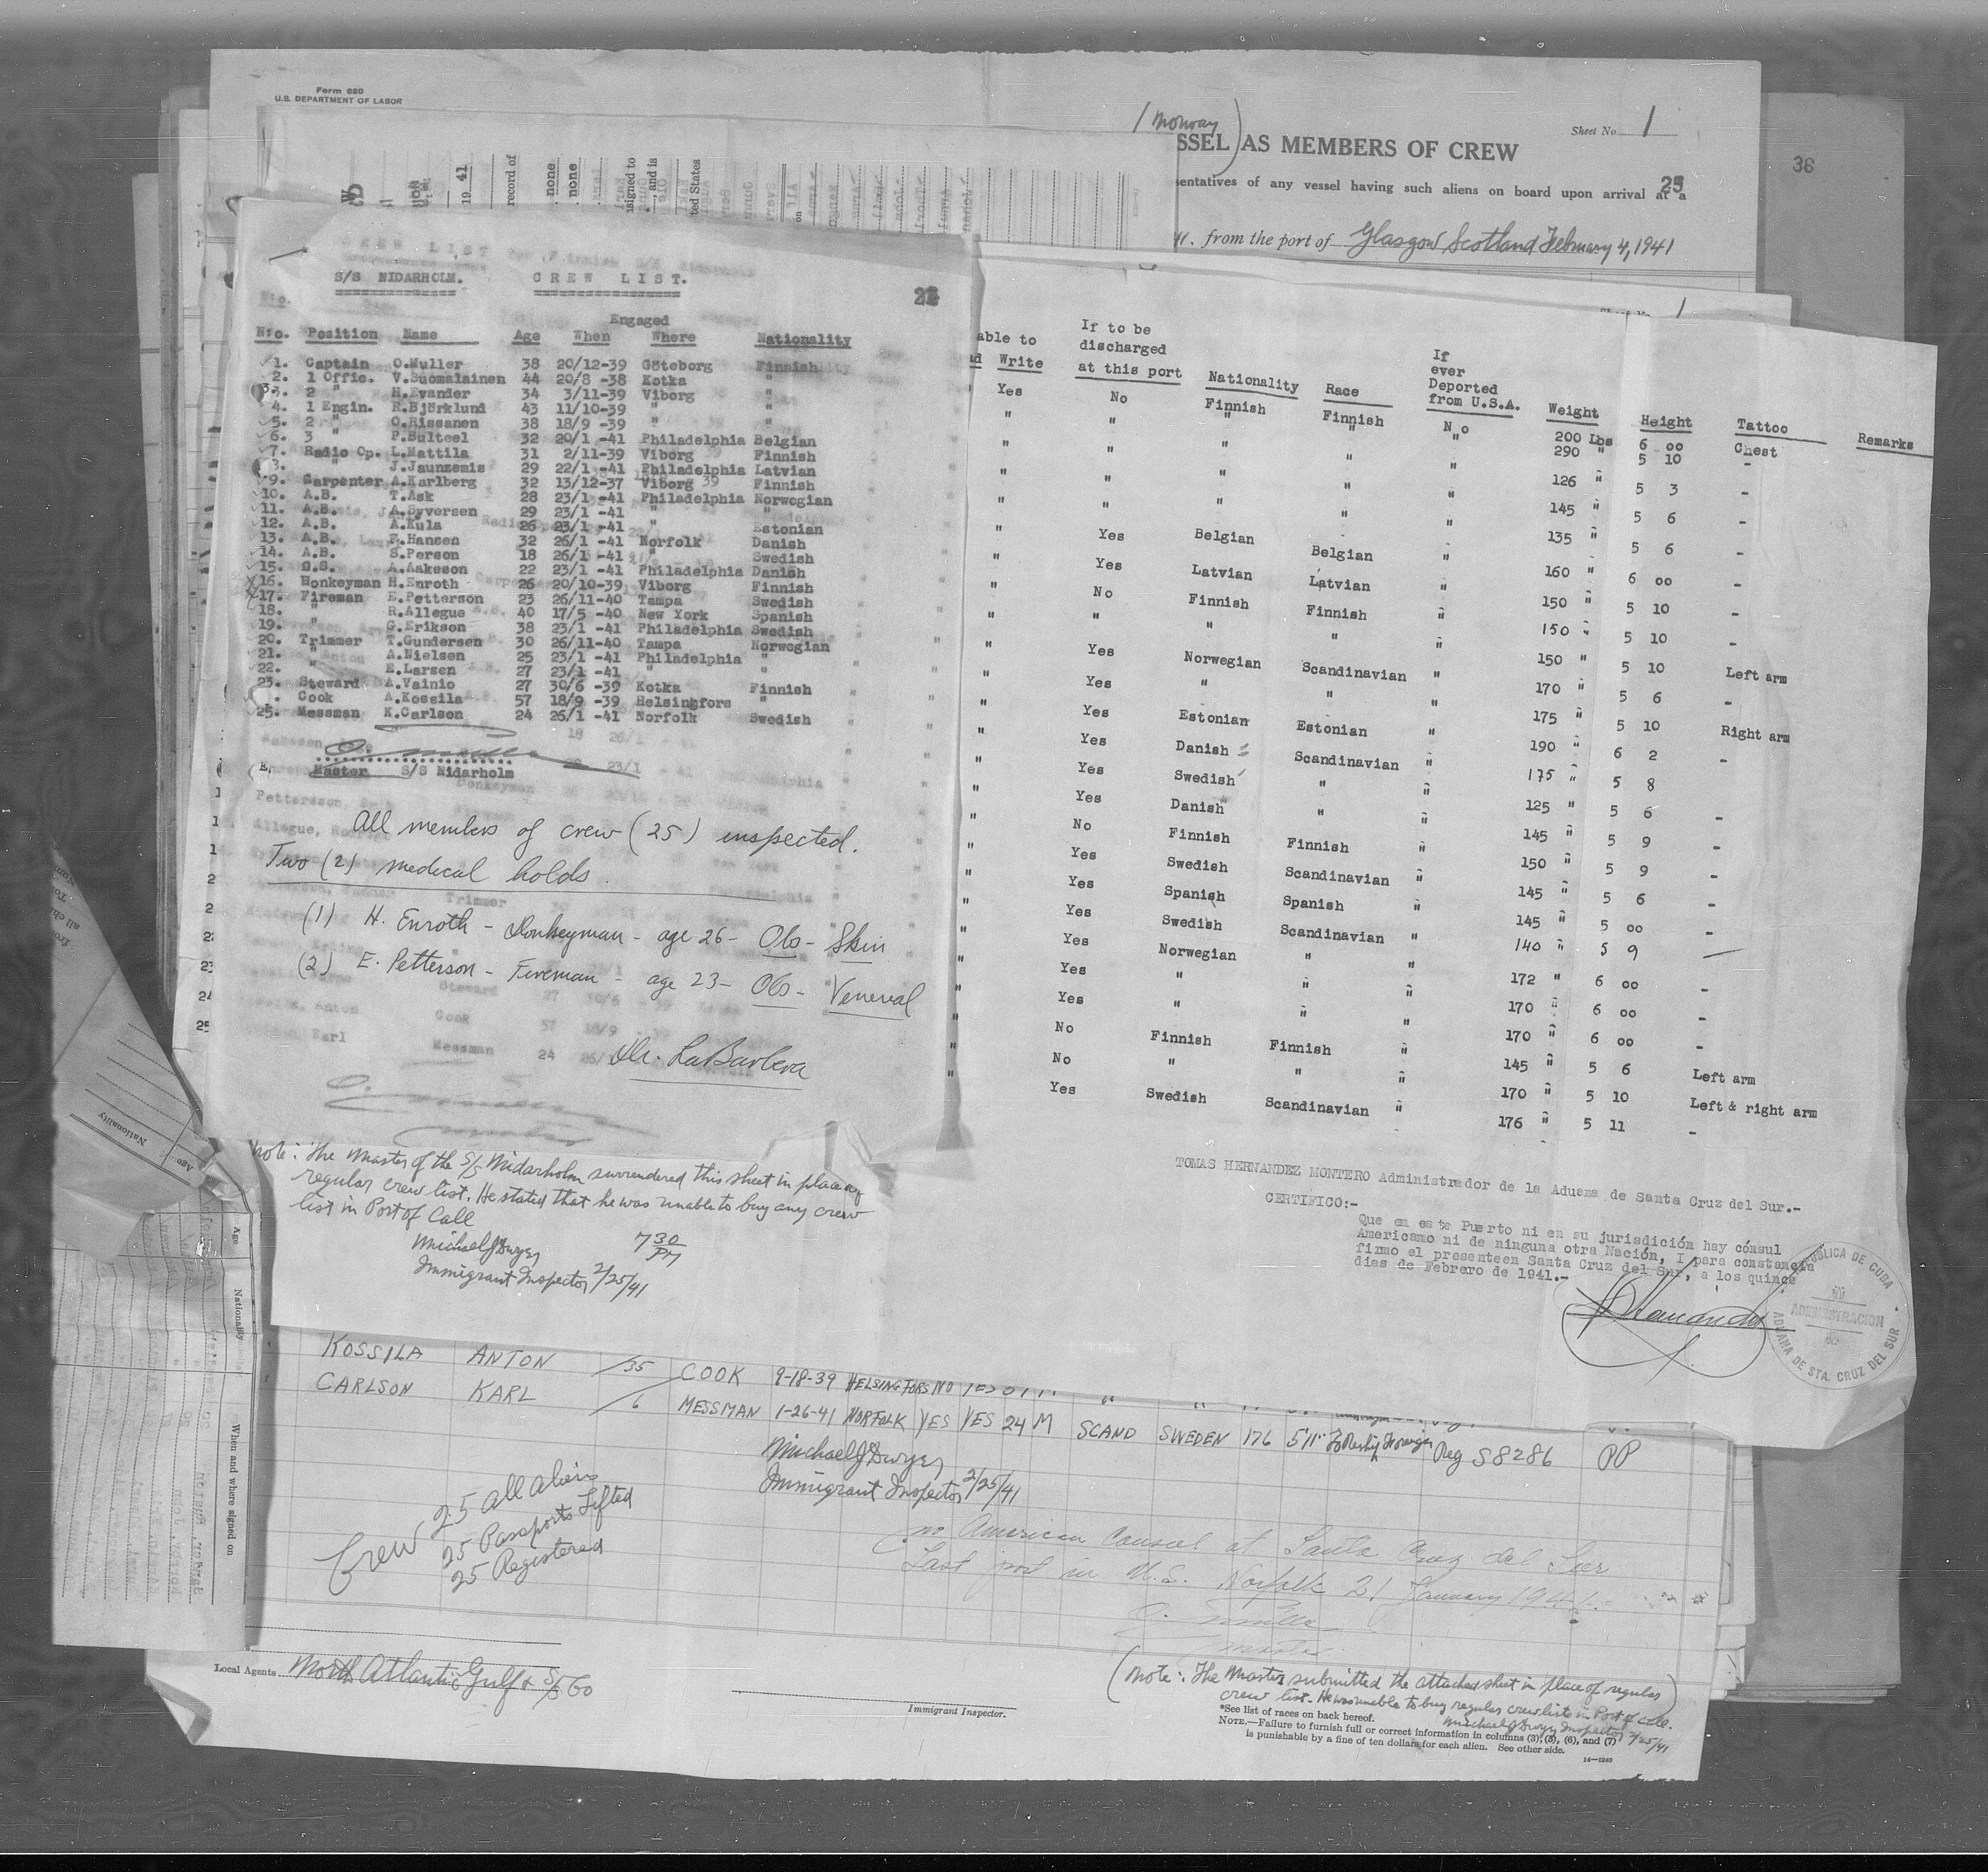 Form 680
U.S. DEPARTMENT OF LABOR
Sheet No. 1
SSEL AS MEMBERS OF CREW
sentatives of any vessel having such aliens on board upon arrival at a
25
36
from the port of Glasgow Scotland February 4, 1941
19 41
record of
none
none
signed to
, and is
ted States
S/S NIDARHOLM. CREW LIST.
Engaged
N:o. Position Name Age When Where Nationality
1. Captain O.Muller 38 20/12-39 Göteborg Finnish
2. 1 Offic. V.Suomalainen 44 20/8 -38 Kotka "
3. 2 " H.Evander 34 3/11-39 Viborg "
4. 1 Engin. R.Björklund 43 11/10-39 " "
5. 2 " O.Rissanen 38 18/9 -39 " "
6. 3 " P.Bulteel 32 20/1 -41 Philadelphia Belgian
7. Radio Op. L.Mattila 31 2/11-39 Viborg Finnish
8. " J.Jaunzemis 29 22/1 -41 Philadelphia Latvian
9. Carpenter A.Karlberg 32 13/12-37 Viborg Finnish
10. A.B. T.Ask 28 23/1 -41 Philadelphia Norwegian
11. A.B. A.Syversen 29 23/1 -41 " "
12. A.B. A.Kula 26 23/1 -41 " Estonian
13. A.B. F.Hansen 32 26/1 -41 Norfolk Danish
14. A.B. S.Person 18 26/1 -41 " Swedish
15. O.S. A.Aakeson 22 23/1 -41 Philadelphia Danish
16. Donkeyman H.Enroth 26 20/10-39 Viborg Finnish
17. Fireman E.Petterson 23 26/11-40 Tampa Swedish
18. " R.Allegue 40 17/5 -40 New York Spanish
19. " G.Erikson 38 23/1 -41 Philadelphia Swedish
20. Trimmer T.Gundersen 30 26/11-40 Tampa Norwegian
21. " A.Nielsen 25 23/1 -41 Philadelphia "
22. " E.Larsen 27 23/1 -41 " "
23. Steward A.Vainio 27 30/6 -39 Kotka Finnish
. Cook A.Kossila 57 18/9 -39 Helsingfors "
25. Messman K.Carlson 24 26/1 -41 Norfolk Swedish
Master S/S Nidarholm
All members of crew (25) inspected.
Two (2) medical holds.
(1) H. Enroth - Donkeyman - age 26 - Obs - Skin
(2) E. Petterson - Fireman - age 23 - Obs - Venereal
Dr. LaBarbera
Note: The Master of the S/S Nidarholm surrendered this sheet in place of
regular crew list. He stated that he was unable to buy any crew
list in Port of Call
Michael J Dwyer 7 30 PM
Immigrant Inspector 2/25/41
able to Write
If to be discharged at this port
Nationality
Race
If ever Deported from U.S.A.
Weight
Height
Tattoo
Remarks
Yes No Finnish Finnish No 200 Lbs 6 00 Chest
" " " " " 290 " 5 10 -
" " " " " 126 " 5 3 -
" " " " " 145 " 5 6 -
" " " " " 135 " 5 6 -
" Yes Belgian Belgian " 160 " 6 00 -
" Yes Latvian Latvian " 150 " 5 10 -
" No Finnish Finnish " 150 " 5 10 -
" " " " " 150 " 5 10 Left arm
" Yes Norwegian Scandinavian " 170 " 5 6 -
" Yes " " " 175 " 5 10 Right arm
" Yes Estonian Estonian " 190 " 6 2 -
" Yes Danish Scandinavian " 175 " 5 8
" Yes Swedish " " 125 " 5 6 -
" Yes Danish " " 145 " 5 9 -
" No Finnish Finnish " 150 " 5 9 -
" Yes Swedish Scandinavian " 145 " 5 6 -
" Yes Spanish Spanish " 145 " 5 00 -
" Yes Swedish Scandinavian " 140 " 5 9 -
" Yes Norwegian " " 172 " 6 00 -
" Yes " " " 170 " 6 00 -
" Yes " " " 170 " 6 00 -
" No Finnish Finnish " 145 " 5 6 Left arm
" No " " " 170 " 5 10 Left & right arm
" Yes Swedish Scandinavian " 176 " 5 11 -
TOMAS HERNANDEZ MONTERO Administrador de la Aduana de Santa Cruz del Sur.-
CERTIFICO:-
Que en este Puerto ni en su jurisdición hay cónsul
Americano ni de ninguna otra Nación, I para constancia
firmo el presenteen Santa Cruz del Sur, a los quince
dias de Febrero de 1941.-
REPUBLICA DE CUBA
ADMINISTRACION
ADUANA DE STA. CRUZ DEL SUR
KOSSILA ANTON 35 COOK 9-18-39 HELSINGFORS NO YES
CARLSON KARL 6 MESSMAN 1-26-41 NORFOLK YES YES 24 M SCAND SWEDEN 176 5'11" Reg S8286 PP
Michael J Dwyer
Immigrant Inspector 2/25/41
Crew 25 all Aliens
25 Passports Lifted
25 Registered
no American Consul at Santa Cruz del Sur
Last port in U.S. Norfolk 21 January 1941.
Local Agents North Atlantic & Gulf S/S Co
Immigrant Inspector.
(Note: The Master submitted the attached sheet in place of regular
crew list. He was unable to buy regular crew lists in Port of Call.)
Michael J Dwyer Inspector 2/25/41
*See list of races on back hereof.
NOTE.—Failure to furnish full or correct information in columns (3), (5), (6), and (7)
is punishable by a fine of ten dollars for each alien. See other side.
14—1240
Age
Nationality
When and where signed on
Nationality
Age